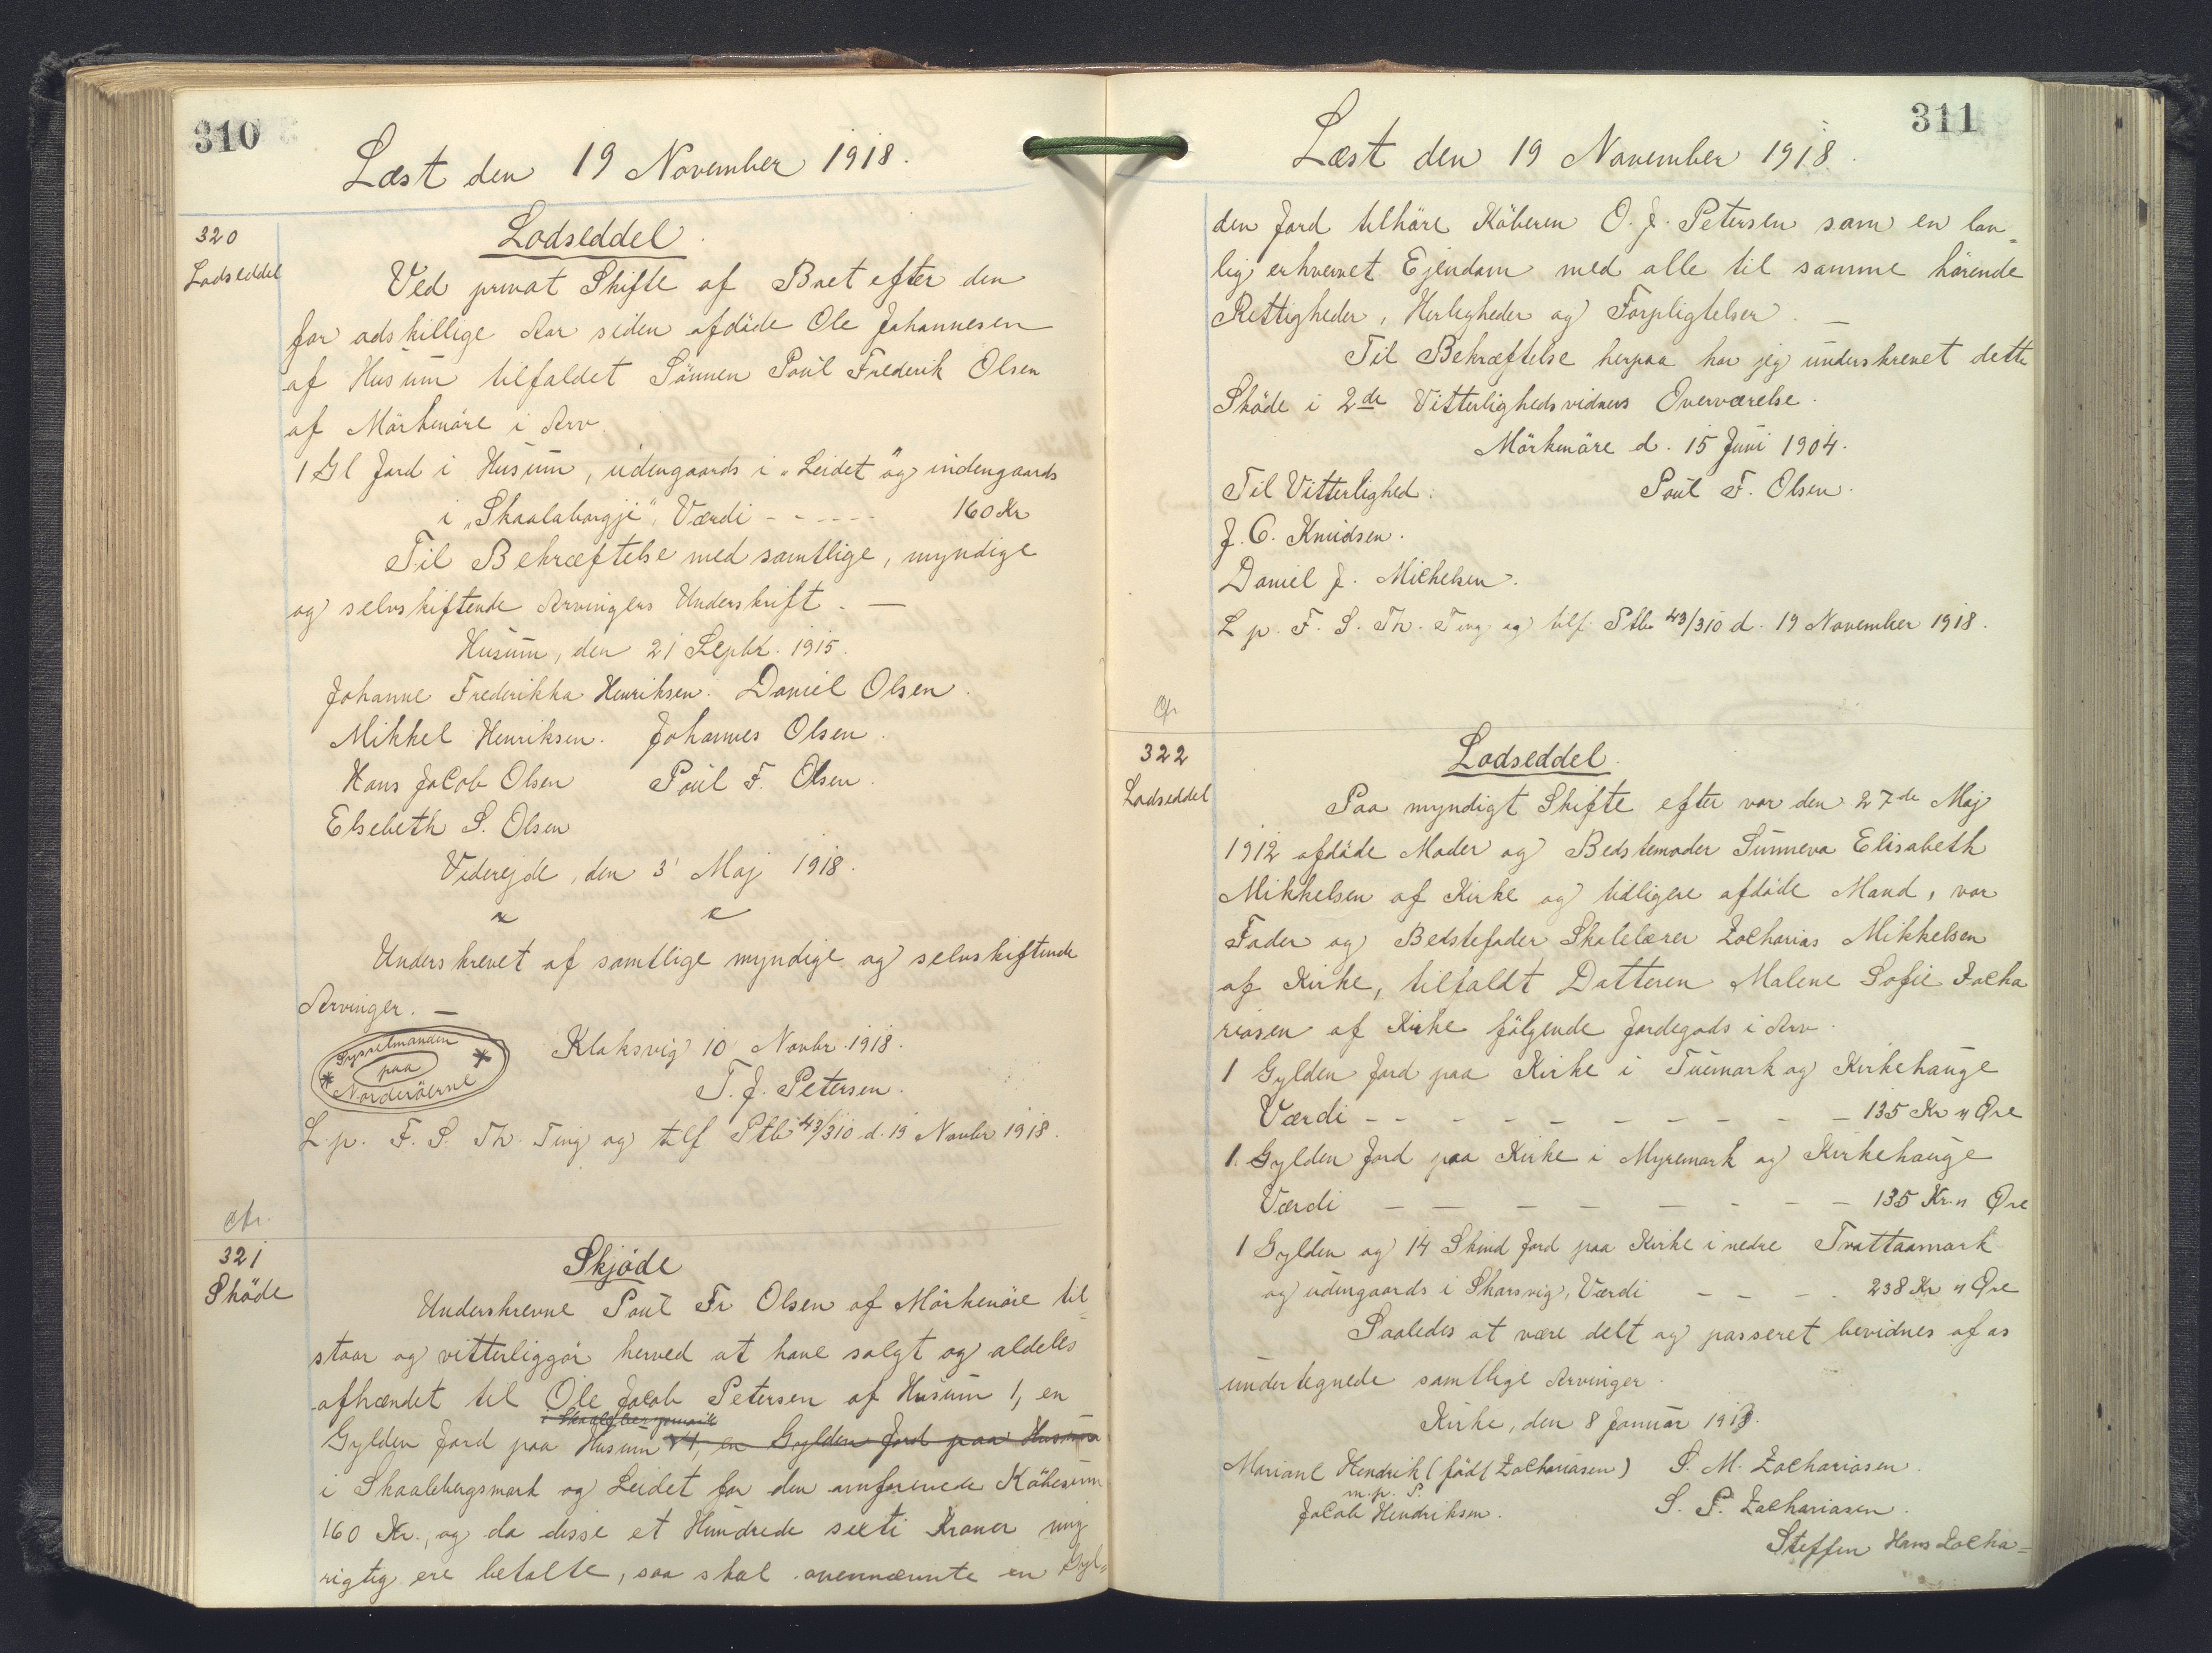 310
Læst den 19 November 1918.
320
Lodseddel
Lodseddel.
Ved privat Skifte af Boet efter den
for adskillige Aar siden afdöde Ole Johannesen
af Husum tilfaldet Sönnen Poul Frederik Olsen
af Mörkenöre i Arv.
1 Gl Jord i Husum, udengaards i "Leidet" og indengaards
i "Skaalabargji", Værdi - - - - - 160 Kr
Til Bekræftelse med samtlige, myndige
og selvskiftende Arvingers Underskrift. —
Husum, den 21 Septbr. 1915.
Johanne Frederikka Henriksen. Daniel Olsen.
Mikkel Henriksen. Johannes Olsen.
Hans Jacob Olsen Poul F. Olsen.
Elsebeth S. Olsen
Viderejde, den 3' Maj 1918.
Underskrevet af samtlige myndige og selvskiftende
Arvinger. —
Sysselmanden
paa
Norderöerne
Klaksvig 10 Novbr. 1918.
T. J. Petersen.
L. p. F. S. Th. Ting og tilf Ptb 43/310 d. 19 Novbr 1918.
Cfr.
321
Sköde
Skjöde
Underskrevne Poul Fr Olsen af Mörkenöre til-
staar og vitterliggör herved at have solgt og aldeles
afhændet til Ole Jacob Petersen af Husum 1, en
i Skaalebergsmark
Gylden Jord paa Husum 1, en Gylden Jord paa Husum
i Skaalebergsmark og Leidet for den omforenede Köbesum
160 Kr., og da disse et Hundrede sexti Kroner mig
rigtig ere betalte, saa skal ovennævnte en Gyl-
311
Læst den 19 November 1918.
den Jord tilhöre Köberen O. J. Petersen som en lov-
lig erhvervet Ejendom med alle til samme hörende
Rettigheder, Herligheder og Forpligtelser. —
Til Bekræftelse herpaa har jeg underskrevet dette
Sköde i 2de Vitterlighedsvidners Overværelse.
Mörkenöre d. 15 Juni 1904.
Til Vitterlighed: Poul F. Olsen.
J. C. Knudsen.
Daniel J. Michelsen.
L p. F. S. Th. Ting og tilf. Ptb 43/310 d. 19 November 1918.
Cfr
322
Lodseddel
Lodseddel.
Paa myndigt Skifte efter vor den 27de Maj
1912 afdöde Moder og Bedstemoder Sunneva Elisabeth
Mikkelsen af Kirke og tidligere afdöde Mand, vor
Fader og Bedstefader Skolelærer Zacharias Mikkelsen
af Kirke, tilfaldt Datteren Malene Sofie Zacha
riasen af Kirke fölgende Jordegods i Arv.
1 Gylden Jord paa Kirke i Tuemark og Kirkehauge
Værdi - - - - - - - - - - 135 Kr " Øre
1. Gylden Jord paa Kirke i Myremark og Kirkehauge
Værdi — — — — — — — — 135 Kr. " Øre
1 Gylden og 14 Skind Jord paa Kirke i nedre Trattaamark
og udengaards i Skarsvig, Værdi - - - - 238 Kr " Øre
Saaledes at være delt og passeret bevidnes af os
undertegnede samtlige Arvinger.
Kirke, den 8 Januar 1913.
Mariane Hendrik (född Zachariasen) S. M. Zachariasen.
m. p. P.
Jacob Hendriksen. S. P. Zachariasen.
Steffen Hans Zacha=